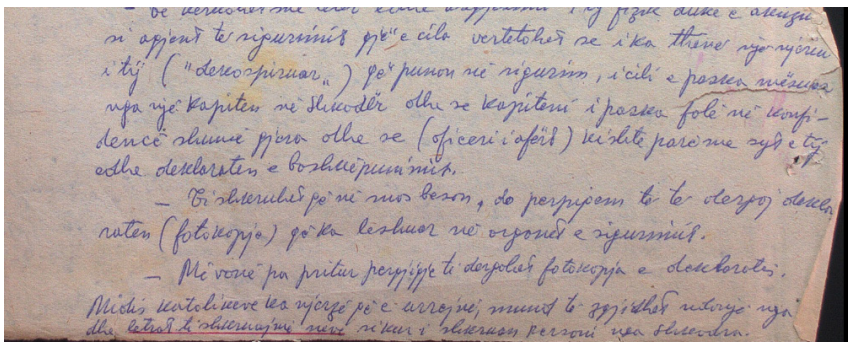 si agjent të sigurimit gjë e cila vertetohet se i ka thënë një njeriu
i tij ("dekospiruar") që punon në sigurim, i cili e paska mësuar
nga një kapiten në Shkodër dhe se kapiteni i paska folë në konfi-
dencë shumë gjera dhe se (oficeri i afërt) kishte parë me sytë e tij
edhe deklaraten e bashkëpunimit.
— Ti shkruhet që në mos beson, do perpiqem të te dergoj dekla
raten (fotokopja) që ka lëshuar në organet e sigurimit.
— Më vonë pa pritur pergjigje ti dergohet fotokopja e deklaratës.
Midis katolikeve ka njerëz që e urrejnë, mund të zgjidhet ndonjë nga
dhe letrat ti shkruajmë nevë sikur i shkruan personi nga Shkodra.